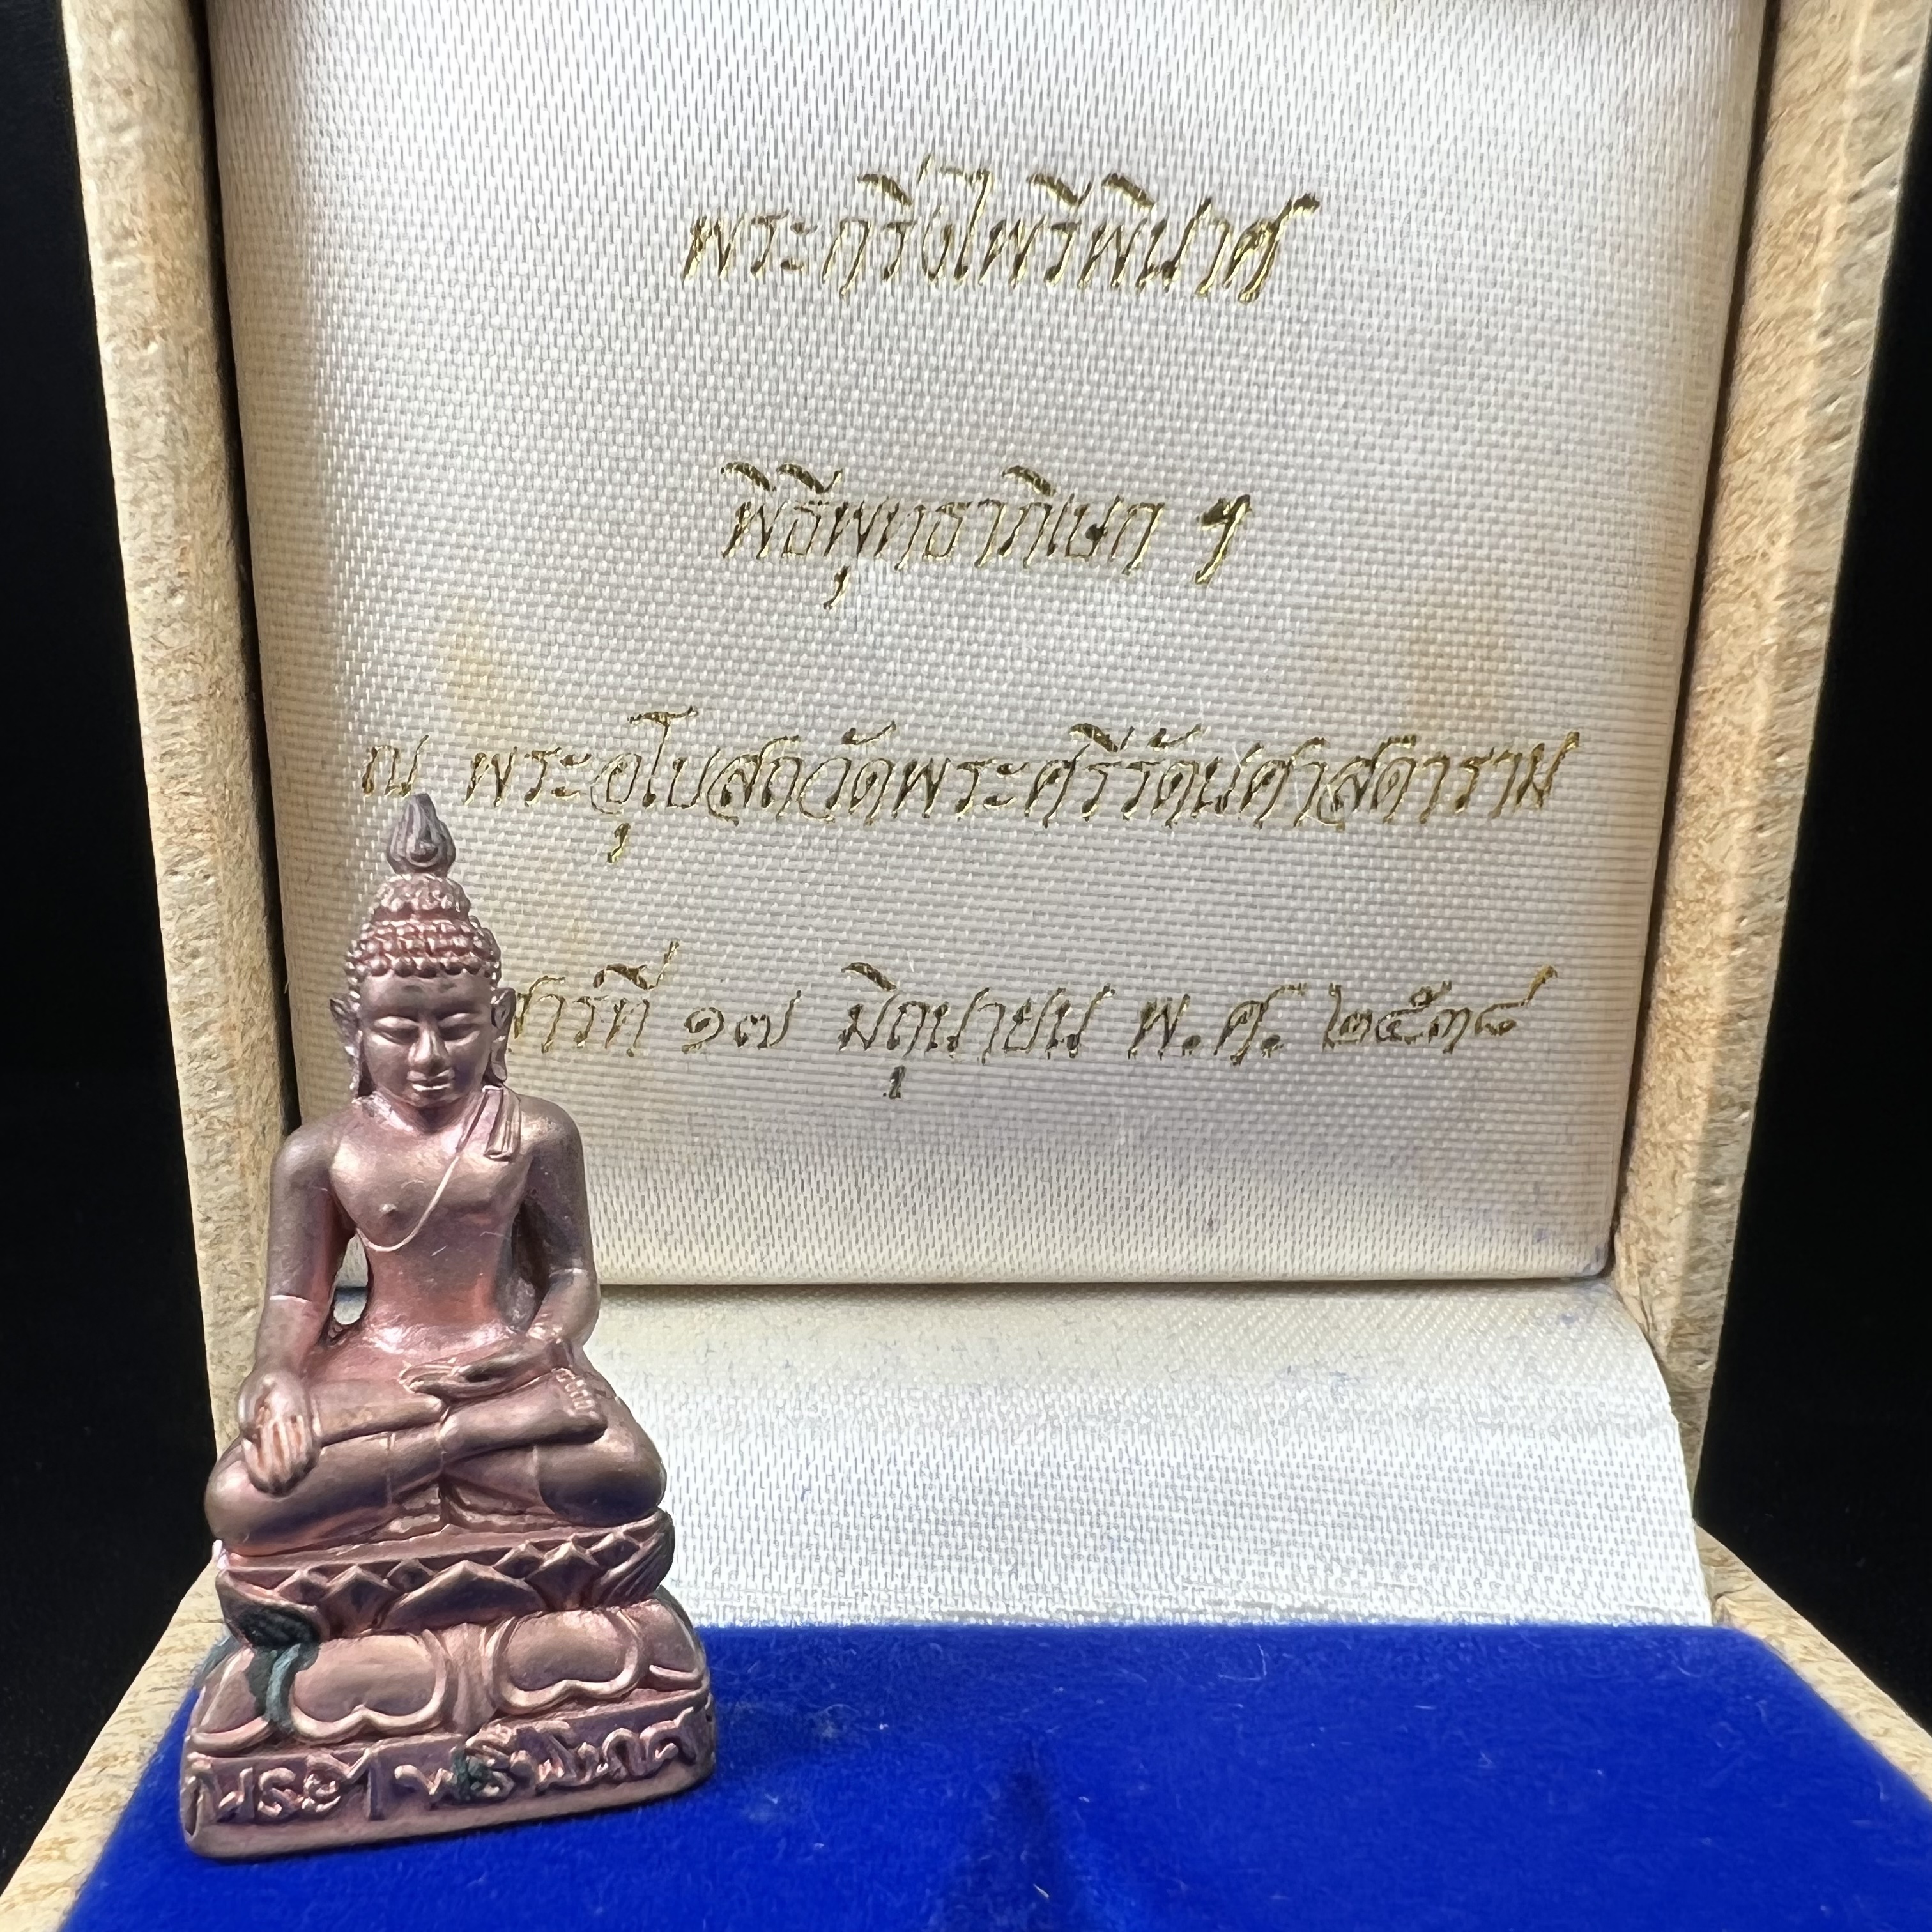 พระกริ่งไพรีพินาศ
พิธีพุทธาภิเษก ฯ
ณ พระอุโบสถวัดพระศรีรัตนศาสดาราม
สาร์ที่ ๑๗ มิถุนายน พ.ศ. ๒๕๓๘
พระไพรีพินาศ